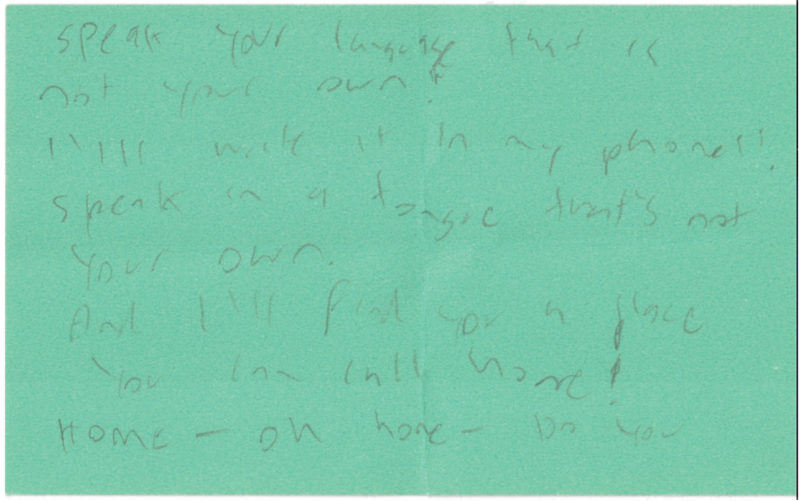 speak your language that is
not your own?
I'lll write it in my phone!!
speak in a tongue that's not
your own.
And I'lll find you a place
you can call home!
HOME – oh home – Do you